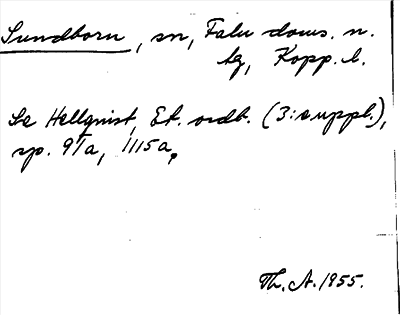 Sundborn, sn, Falu doms. n.
tg, Kopp. l.
Se Hellqvist, Et. ordb. (3:e uppl.),
sp. 91a, 1115a,
Th. A. 1955.